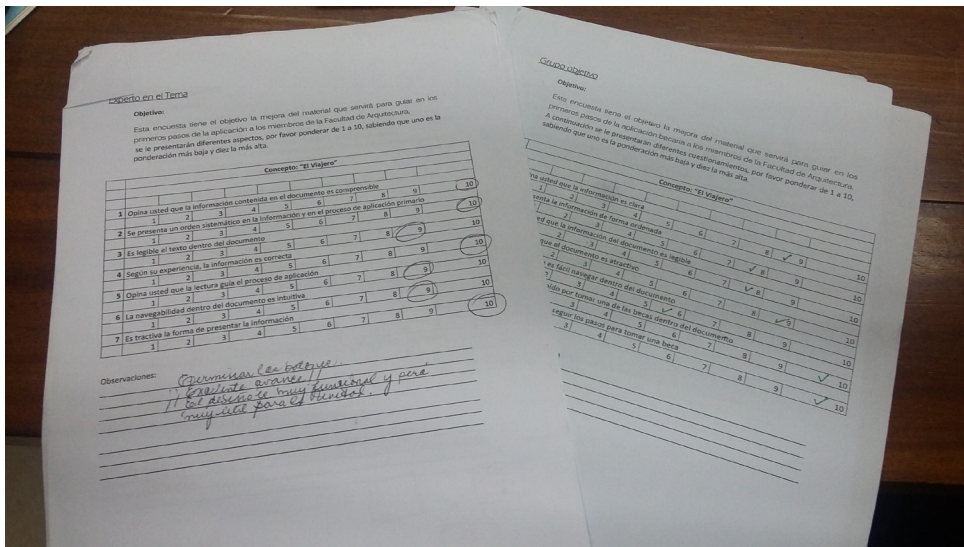 Experto en el Tema
Objetivo:
Esta encuesta tiene el objetivo la mejora del material que servirá para guiar en los
primeros pasos de la aplicación a los miembros de la Facultad de Arquitectura,
se le presentarán diferentes aspectos, por favor ponderar de 1 a 10, sabiendo que uno es la
ponderación más baja y diez la más alta.
Concepto: "El Viajero"
1 Opina usted que la información contenida en el documento es comprensible
1 2 3 4 5 6 7 8 9 10
2 Se presenta un orden sistemático en la información y en el proceso de aplicación primario
1 2 3 4 5 6 7 8 9 10
3 Es legible el texto dentro del documento
1 2 3 4 5 6 7 8 9 10
4 Según su experiencia, la información es correcta
1 2 3 4 5 6 7 8 9 10
5 Opina usted que la lectura guía el proceso de aplicación
1 2 3 4 5 6 7 8 9 10
6 La navegabilidad dentro del documento es intuitiva
1 2 3 4 5 6 7 8 9 10
7 Es tractiva la forma de presentar la información
1 2 3 4 5 6 7 8 9 10
Observaciones:
¡¡ avance!!
El diseño es muy funcional y
muy útil para
Grupo objetivo
Objetivo:
Esta encuesta tiene el objetivo la mejora del material que servirá para guiar en los
primeros pasos de la aplicación becaria a los miembros de la Facultad de Arquitectura.
A continuación se le presentarán diferentes cuestionamientos, por favor ponderar de 1 a 10,
sabiendo que uno es la ponderación más baja y diez la más alta.
Concepto: "El Viajero"
usted que la información es clara
1 2 3 4 5 6 7 8 9 10
la información de forma ordenada
2 3 4 5 6 7 8 9 10
que la información del documento es legible
2 3 4 5 6 7 8 9 10
que el documento es atractivo
2 3 4 5 6 7 8 9 10
es fácil navegar dentro del documento
3 4 5 6 7 8 9 10
por tomar una de las becas dentro del documento
3 4 5 6 7 8 9 10
seguir los pasos para tomar una beca
3 4 5 6 7 8 9 10